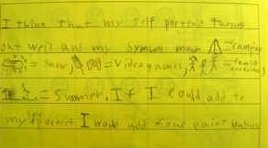 I think that my self portrait turned
out well and my symbols mean = camping
= snow, = Videogames, = family
= Summer. If I could add to
my portrait I would add some paint